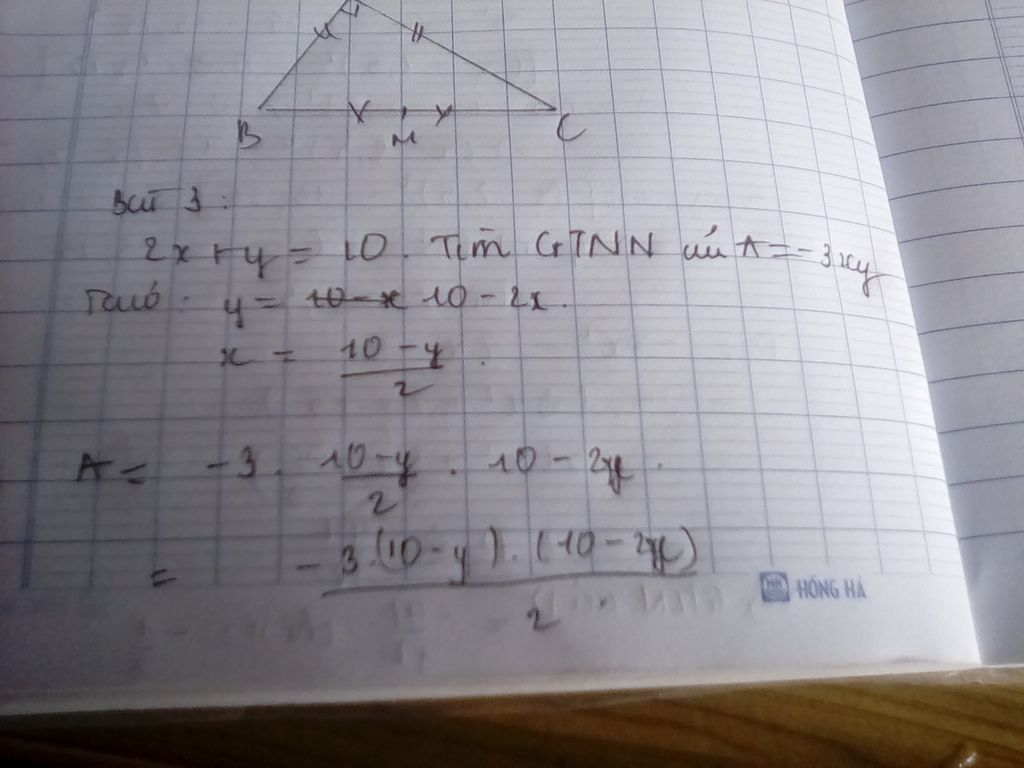 B M C
Bài 3:
2x + y = 10. Tìm GTNN của A = -3xy
Ta có: y = 10 - x 10 - 2x.
x = \frac{10 - y}{2}.
A = -3 . \frac{10 - y}{2} . 10 - 2y.
= \frac{-3.(10 - y).(10 - 2x)}{2}
HỒNG HÀ